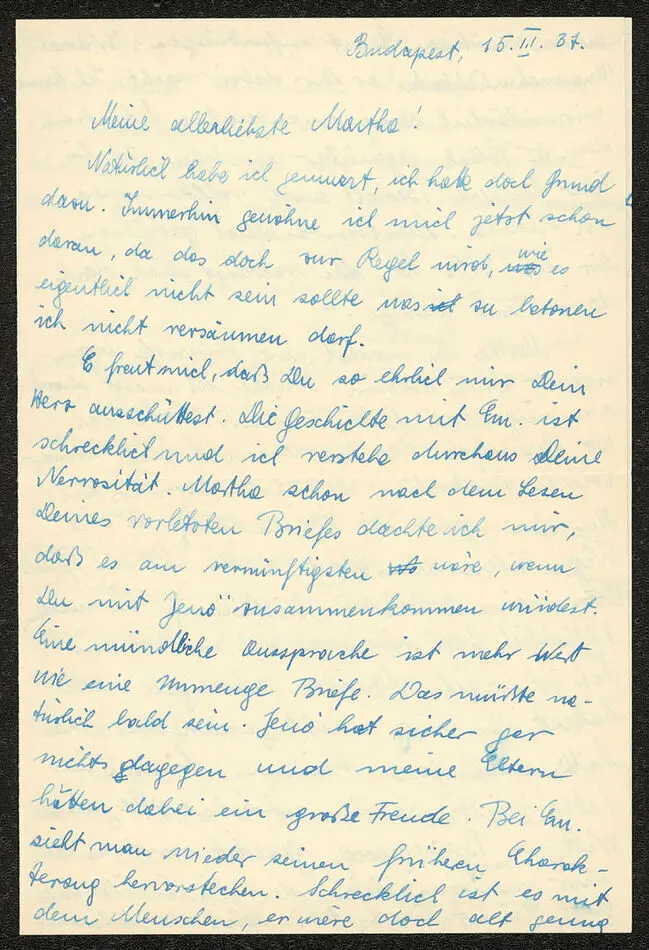 Budapest, 15. III. 37.
Meine allerliebste Martha!
Natürlich habe ich gemurrt, ich hatte doch Grund
dazu. Immerhin gewöhne ich mich jetzt schon
daran, da das doch zur Regel wird, wie es
eigentlich nicht sein sollte was zu betonen
ich nicht versäumen darf.
Es freut mich, daß Du so ehrlich mir Dein
Herz ausschüttest. Die Geschichte mit Em. ist
schrecklich und ich verstehe durchaus Deine
Nervosität. Martha schon nach dem Lesen
Deines vorletzten Briefes dachte ich mir,
daß es am vernünftigsten wäre, wenn
Du mit Jenö zusammenkommen würdest.
Eine mündliche Aussprache ist mehr Wert
wie eine Unmenge Briefe. Das müßte na-
türlich bald sein. Jenö hat sicher gar
nichts dagegen und meine Eltern
hätten dabei ein große Freude. Bei Em.
sieht man wieder seinen frühern Charak-
terzug hervorstechen. Schrecklich ist es mit
dem Menschen, er wäre doch alt genug